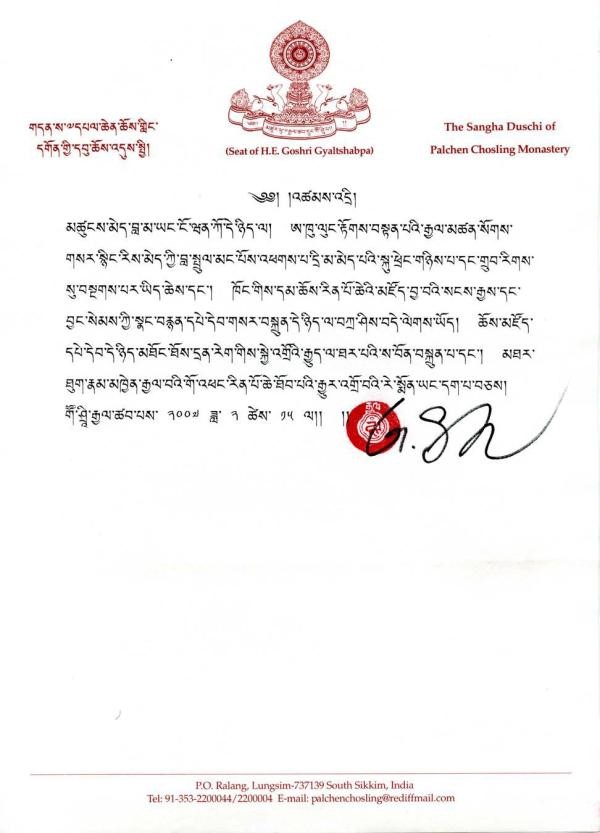 གདན་ས་༧དཔལ་ཆེན་ཆོས་གླིང་
དགོན་གྱི་དབུ་ཆོས་འདུས་སྤྱི།
(Seat of H.E. Goshri Gyaltshabpa)
The Sangha Duschi of
Palchen Chosling Monastery
༄༅། །འཚམས་འདྲི།
མཚུངས་མེད་བླ་མ་ཡང་ངོ་ཝན་ཀོ་དེ་ཉིད་ལ། ཨ་ཁུ་ལུང་རྟོགས་བསྟན་པའི་རྒྱལ་མཚན་སོགས་
གསར་རྙིང་རིས་མེད་ཀྱི་བླ་སྤྲུལ་མང་པོས་འཕགས་པ་དྲི་མ་མེད་པའི་སྐུ་ཕྲེང་གཉིས་པ་དང་གྲུབ་རིགས་
སུ་བསྔགས་པར་ཡིད་ཆེས་དང་། ཁོང་གིས་དམ་ཆོས་རིན་པོ་ཆེའི་མཛོད་བྱ་བའི་སངས་རྒྱས་དང་
བྱང་སེམས་ཀྱི་སྣང་བརྙན་དཔེ་དེབ་གསར་བསྐྲུན་དེ་ཉིད་ལ་བཀྲ་ཤིས་བདེ་ལེགས་ཡོད། ཆོས་མཛོད་
དཔེ་དེབ་དེ་ཉིད་མཐོང་ཐོས་དྲན་རེག་གིས་སྐྱེ་འགྲོའི་རྒྱུད་ལ་ཐར་པའི་ས་བོན་བསྐྲུན་པ་དང་། མཐར་
ཐུག་རྣམ་མཁྱེན་རྒྱལ་བའི་གོ་འཕང་རིན་པོ་ཆེ་ཐོབ་པའི་རྒྱུར་འགྲོ་བའི་རེ་སྨོན་ཡང་དག་པ་བཅས།
གོ་ཤྲཱི་རྒྱལ་ཚབ་པས་ ༢༠༠༧ ཟླ་ ༢ ཚེས་ ༡༥ ལ།། །།
P.O. Ralang, Lungsim-737139 South Sikkim, India
Tel: 91-353-2200044/2200004 E-mail: palchenchosling@rediffmail.com